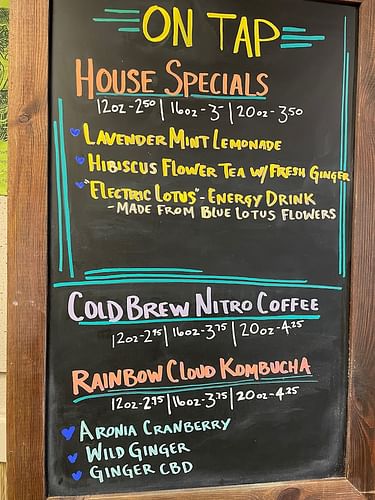 ON TAP
HOUSE SPECIALS
12oz-2.50 | 16oz-3- | 20oz-3.50
LAVENDER MINT LEMONADE
HIBISCUS FLOWER TEA W/ FRESH GINGER
"ELECTRIC LOTUS"-ENERGY DRINK
-MADE FROM BLUE LOTUS FLOWERS
COLD BREW NITRO COFFEE
12oz-2.75 | 16oz-3.75 | 20oz-4.25
RAINBOW CLOUD KOMBUCHA
12oz-2.75 | 16oz-3.75 | 20oz-4.25
ARONIA CRANBERRY
WILD GINGER
GINGER CBD